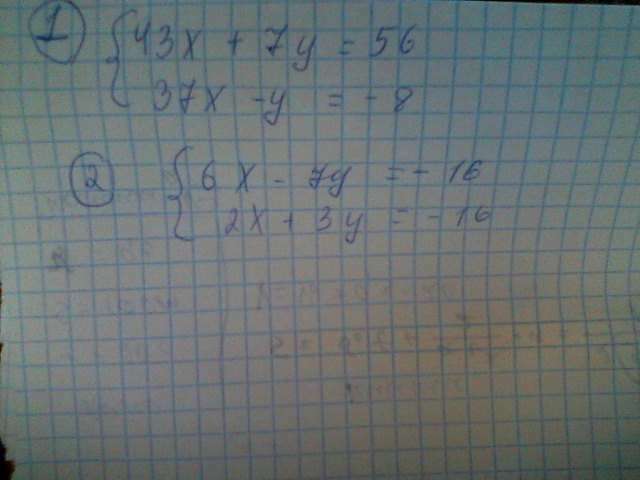 1) { 43x + 7y = 56
37x - y = - 8
2) { 6x - 7y = - 16
2x + 3y = - 16